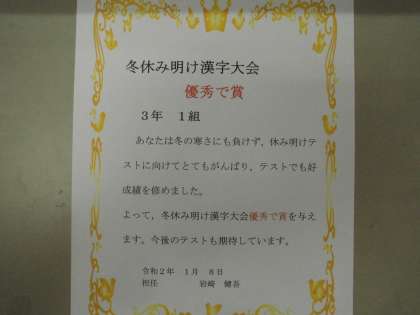 冬休み明け漢字大会
優秀で賞
３年　１組
あなたは冬の寒さにも負けず，休み明けテ
ストに向けてとてもがんばり，テストでも好
成績を修めました。
よって，冬休み明け漢字大会優秀で賞を与え
ます。今後のテストも期待しています。
令和２年　１月　８日
担任　岩崎　健吾